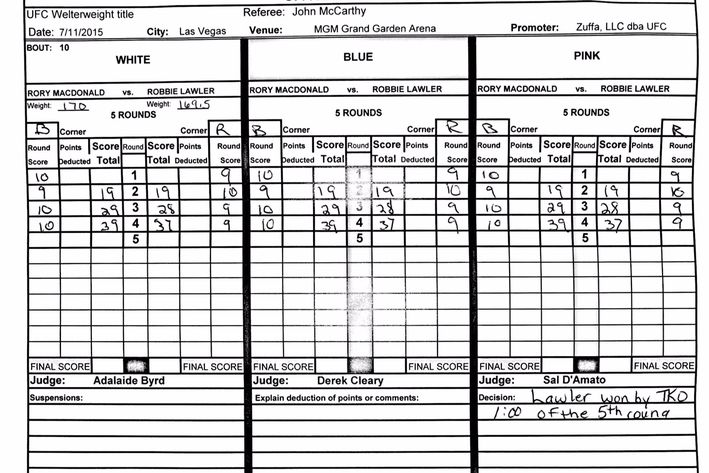 UFC Welterweight title Referee: John McCarthy
Date: 7/11/2015 City: Las Vegas Venue: MGM Grand Garden Arena Promoter: Zuffa, LLC dba UFC
BOUT: 10
WHITE BLUE PINK
RORY MACDONALD vs. ROBBIE LAWLER RORY MACDONALD vs. ROBBIE LAWLER RORY MACDONALD vs. ROBBIE LAWLER
Weight: 170 Weight: 169.5
5 ROUNDS 5 ROUNDS 5 ROUNDS
B Corner Corner R B Corner Corner R B Corner Corner R
Round Points Score Round Score Points Round Round Points Score Round Score Points Round Round Points Score Round Score Points Round
Score Deducted Total Total Deducted Score Score Deducted Total Total Deducted Score Score Deducted Total Total Deducted Score
10 1 9 10 1 9 10 1 9
9 19 2 19 10 9 19 2 19 10 9 19 2 19 10
10 29 3 28 9 10 29 3 28 9 10 29 3 28 9
10 39 4 37 9 10 39 4 37 9 10 39 4 37 9
5 5 5
FINAL SCORE FINAL SCORE FINAL SCORE FINAL SCORE FINAL SCORE FINAL SCORE
Judge: Adalaide Byrd Judge: Derek Cleary Judge: Sal D'Amato
Suspensions: Explain deduction of points or comments: Decision: Lawler won by TKO
1:00 of the 5th round